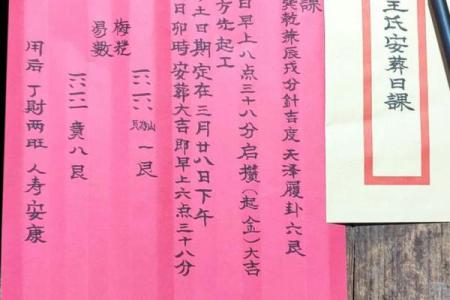 王氏安葬日課
課
巽乾兼辰戌分針吉度 天泽履卦六艮
日早上八点三十八分启攒(起金)大吉
方先起工
土日期定在三月廿八日下午
日卯時安葬大吉即早上六点三十八分
梅花
易数
一艮
八艮
用后 丁財两旺 人寿安康